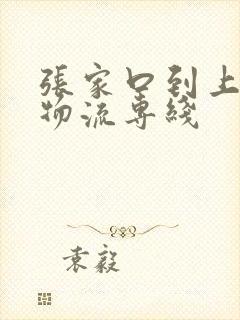 張家口到上
物流専綫
袁毅